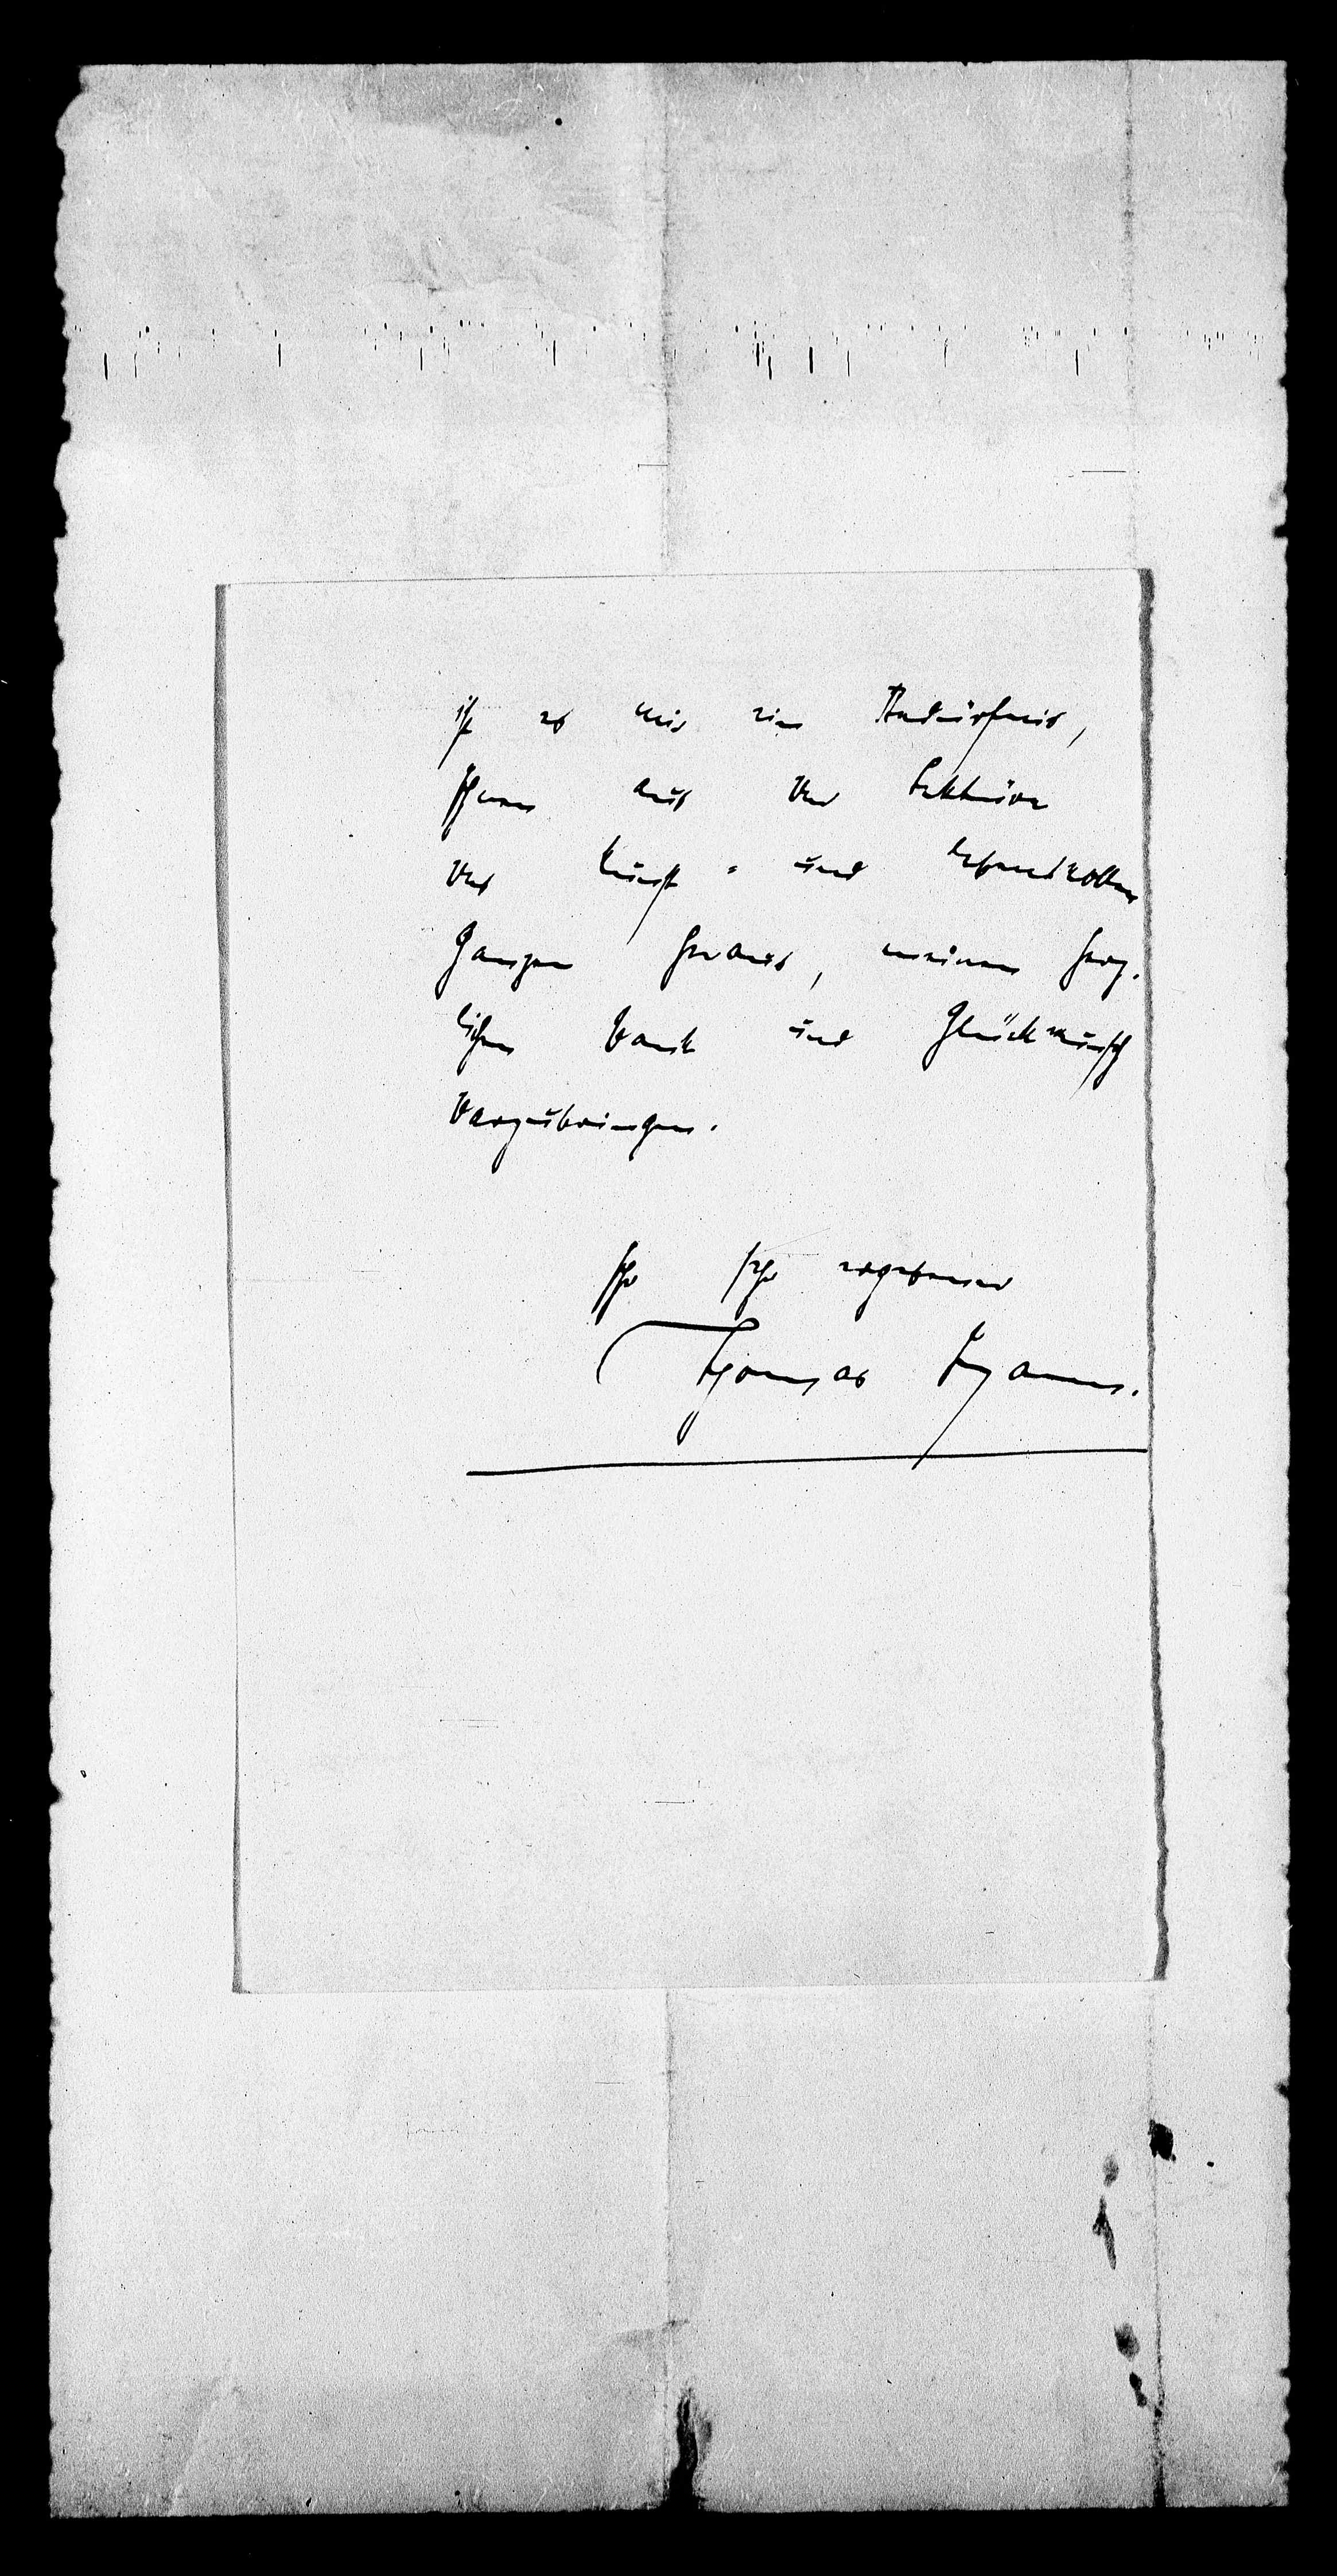 ist es mir ein Bedürfnis,
Ihnen aus der Lektüre
des kunst- und lebensvollen
Ganzen heraus, meinen herz-
lichen Dank und Glückwunsch
darzubringen.
Ihr sehr ergebener
Thomas Mann.